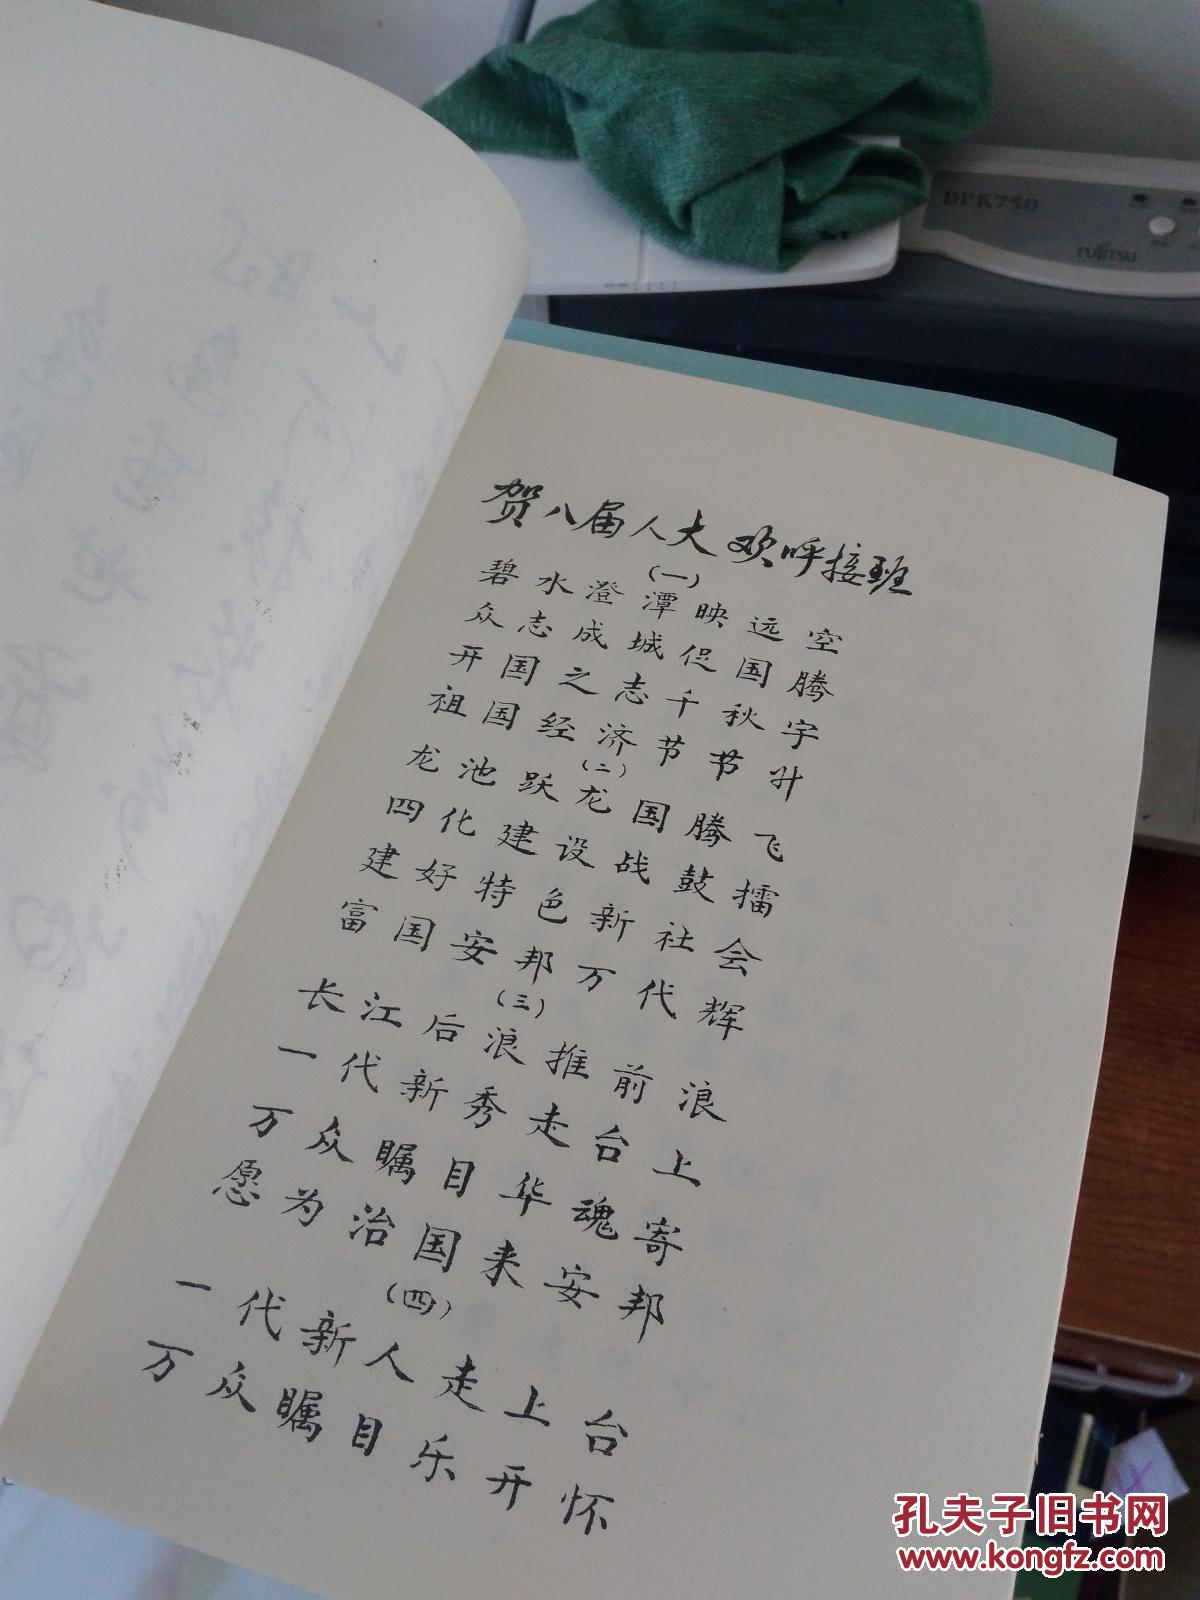 DPK750
FUJITSU
贺八届人大欢呼接班
(一)
碧水澄潭映远空
众志成城促国腾
开国之志千秋宇
祖国经济节节升
(二)
龙池跃龙国腾飞
四化建设战鼓擂
建好特色新社会
富国安邦万代辉
(三)
长江后浪推前浪
一代新秀走台上
万众瞩目华魂寄
愿为治国来安邦
(四)
一代新人走上台
万众瞩目乐开怀
孔夫子旧书网
www.kongfz.com